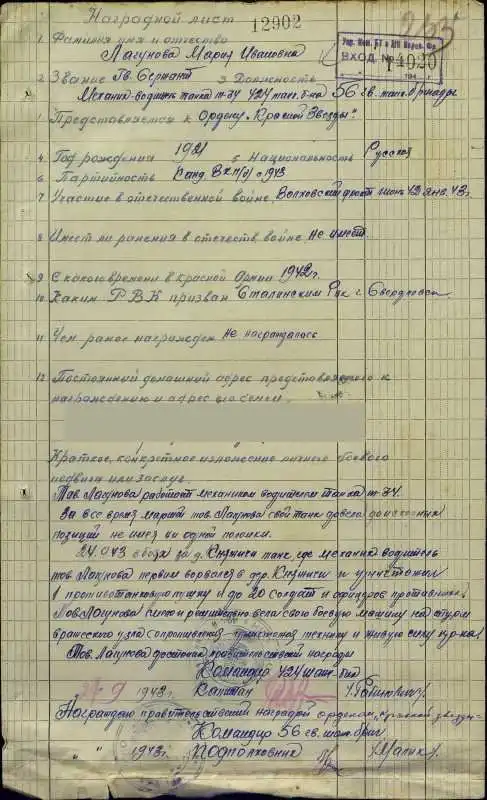 Наградной лист 12902
1. Фамилия имя и отчество
Лагунова Мария Ивановна
ВХОД. № 14020
2. Звание Гв. Сержант 3 Должность
Механик-водитель танка Т-34 424 танк. б-на 56 гв. танк. бригады
Представляется к Ордену "Красной Звезды".
4. Год рождения 1921 5 Национальность Русская
6 Партийность Канд. ВКП(б) с 1943
7 Участие в отечественной войне Волховский фронт 42 янв. 43г.
8 Имеет ли ранения в отечеств. войне Не имеет.
9 С какого времени в красной Армии 1942г.
10 Каким РВК призван Сталинским Рвк г. Свердловска
11 Чем ранее награжден Не награждалась
12 Постоянный домашний адрес представляемого к
награждению и адрес его семьи.
Краткое, конкретное изложение личного боевого
подвига или заслуг.
Тов. Лагунова работает механиком водителем танка Т-34.
За все время маршей тов. Лагунова свой танк довела до исходных
позиций не имея ни одной поломки.
в бою за д. танк, где механик водитель
тов. Лагунова первым ворвался в дер. и уничтожил
1 противотанковую пушку и до 20 солдат и офицеров противника.
Тов. Лагунова смело и решительно вела свою боевую машину на штурм
вражеского узла сопротивления уничтожая технику и живую силу пр-ка.
Тов. Лагунова достойна правительственной награды
Командир 424 танк. б-на
1943г. Капитан
Награждаю правительственной наградой орденом "Красной звезды"
Командир 56 гв. танк. бриг.
" " 1943г. Подполковник /Малик/